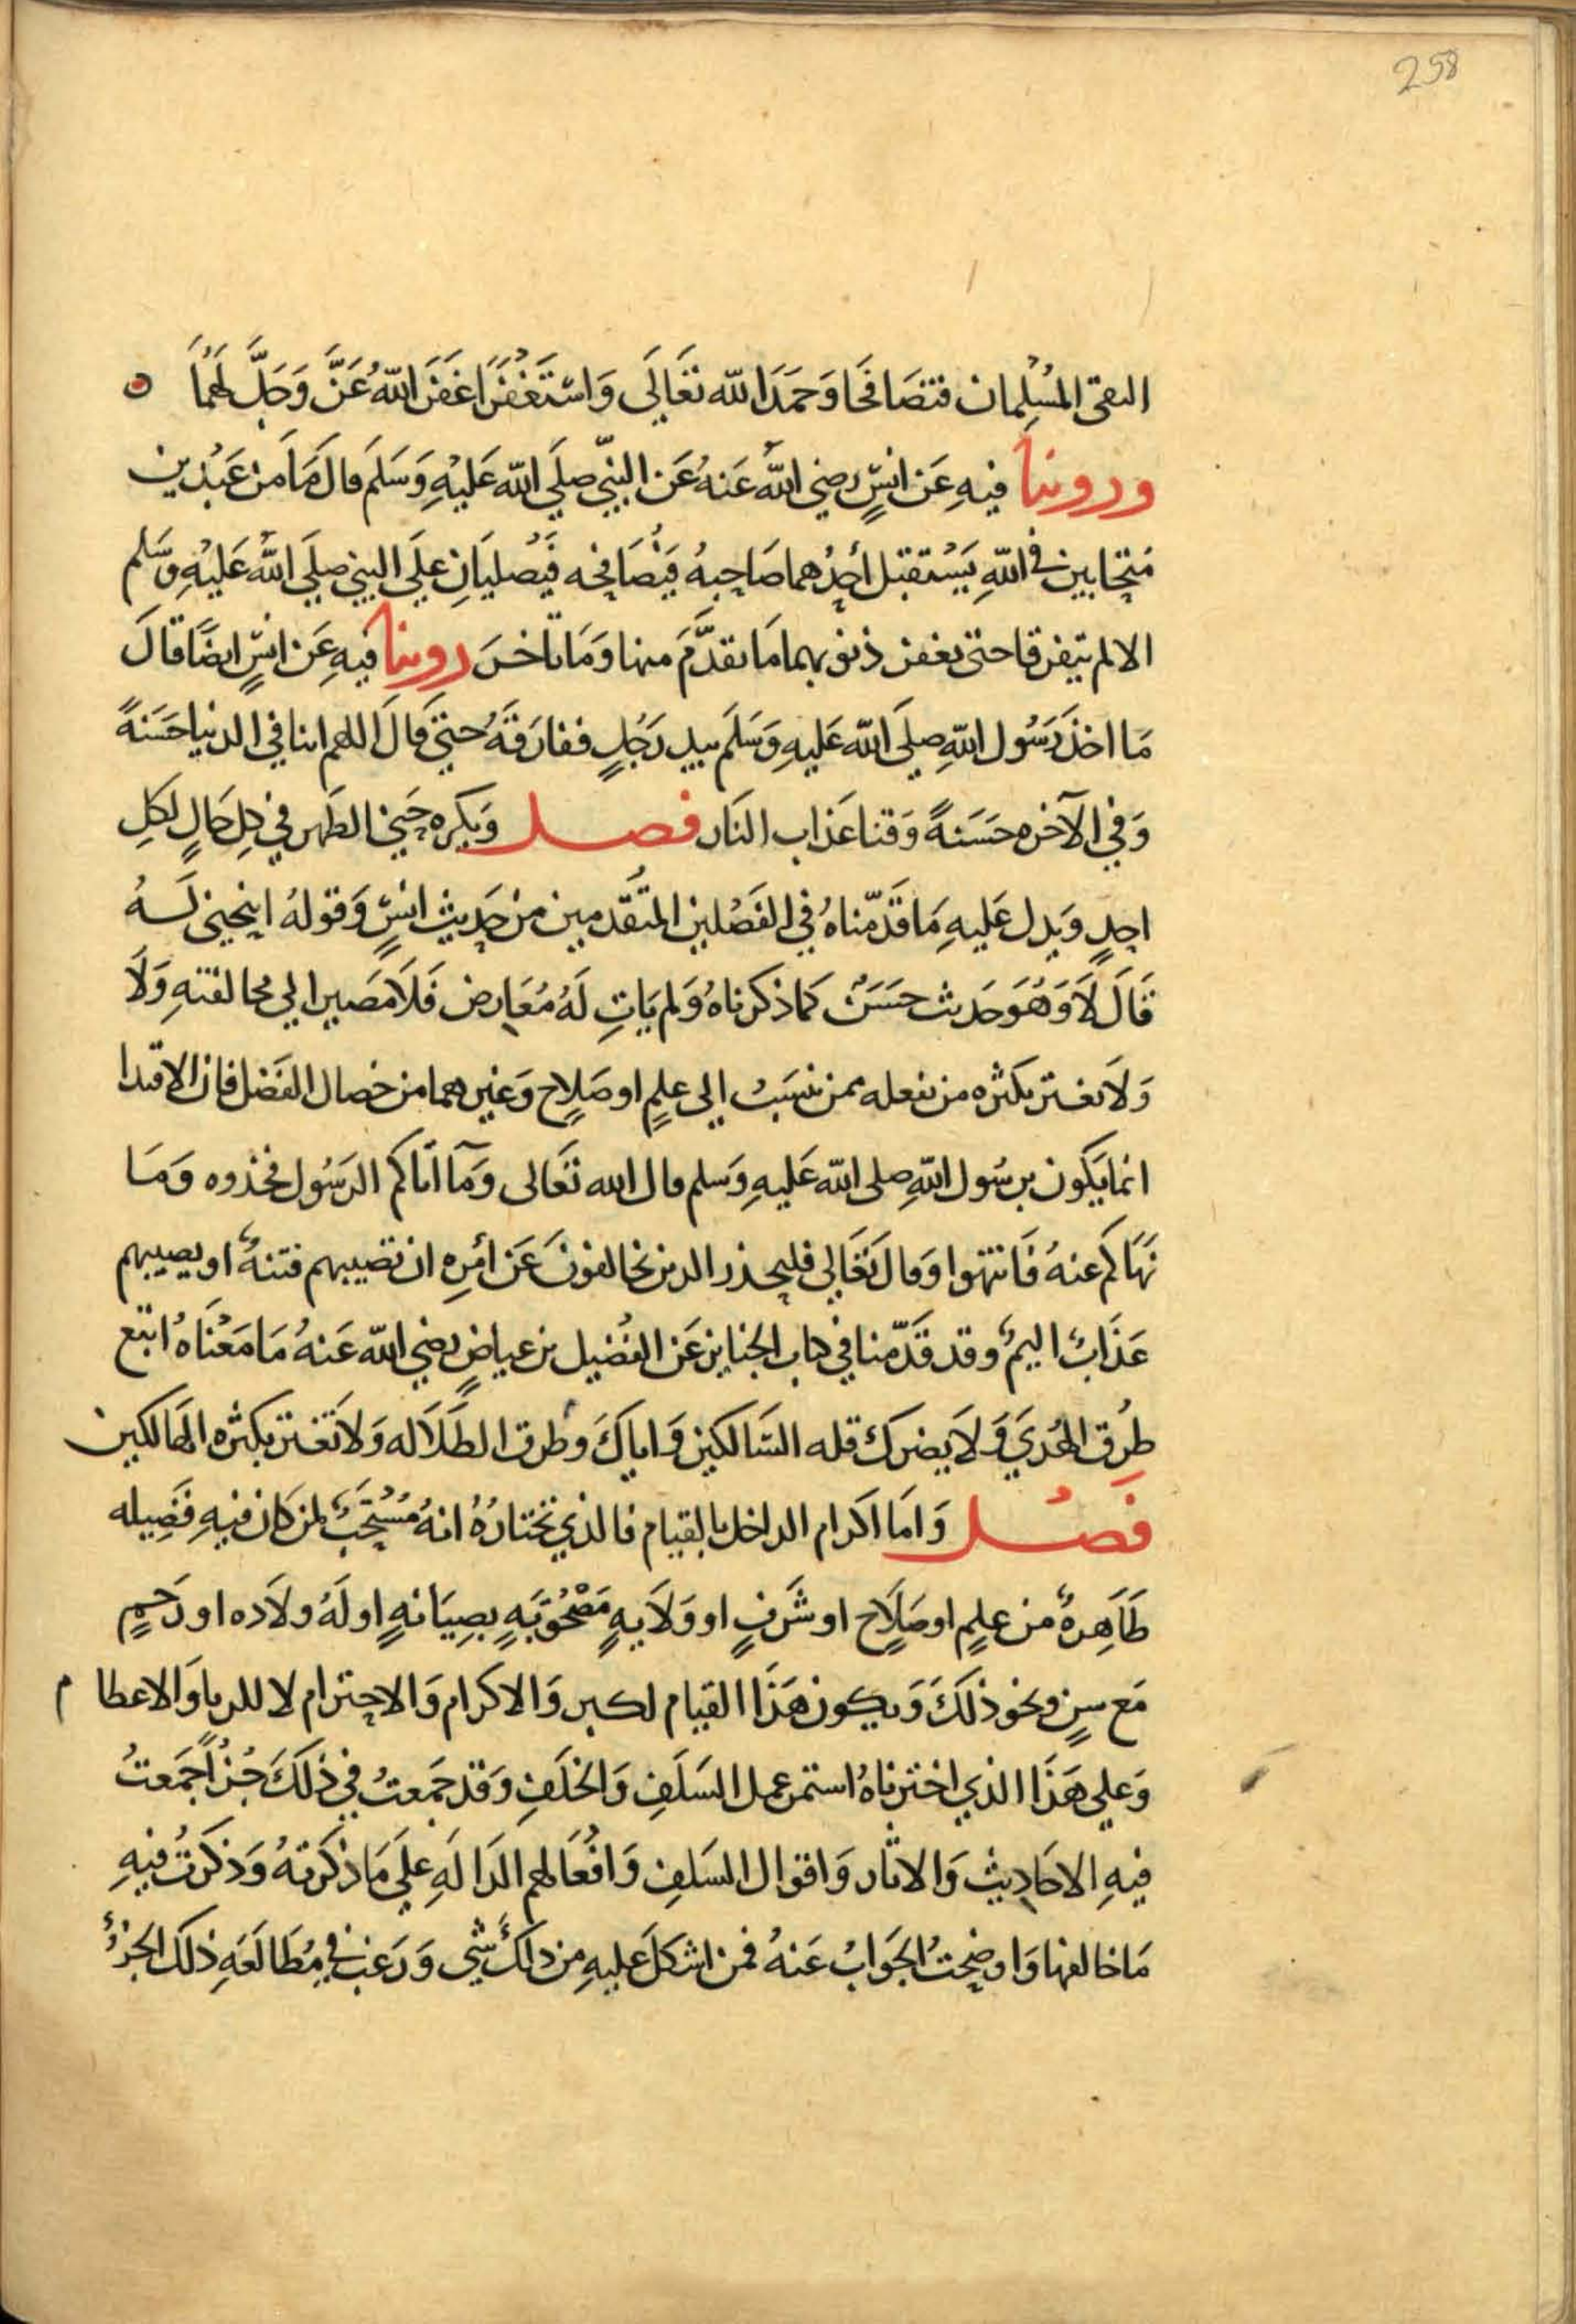 258
التقى المُسْلِمان فتصَافَحَا وَحَمَدَا الله تعَالَى وَاسْتَغْفَرَا غَفَرَ اللهُ عَزَّ وَجَلَّ لَهُمَا
وروينا فيهِ عَن انسٍ رضي اللهُ عَنهُ عَن النبيّ صلَي الله عَليْهِ وَسَلمَ قالَ مَا مَن عَبْدين
مُتحابين في اللهِ يَسْتقبل أحِدُهما صَاحِبهُ فيُصَافحه فيُصليَانِ علَي النبي صلَي اللهُ عَليْهِ وَسَلم
الا لم يتفرقا حتى تغفر ذنوبهما مَا تقدَّمَ منها وَمَا تاخرَ روينا فيهِ عَن انسٍ ايضًا قالَ
مَا اخذَ رَسُول اللهِ صلَي الله عَليهِ وَسَلَم بيد رَجُلٍ ففارَقَهُ حتيَ قَالَ اللهم اتنا في الدنيا حَسَنةً
وَفي الآخره حسَنةً وَقنا عَذاب النَار فصل وَيَكره حَني الظهر في كلِ حَالٍ لكلِ
احدٍ وَيدل عَليهِ مَا قَدّمناهُ في الفَصْلين المتقَدمين من حَديث انسٍ وَقولهُ اينحني لَهُ
قَالَ لَا وَهُوَ حَديث حسَنٌ كما ذكرناهُ وَلم يَاتِ لَهُ مُعَارض فَلَا مصَير الي مخالفتهِ وَلَا
وَلَا تغتر بكثره من يفعله ممن ينسَبُ الى علمٍ او صَلاح وَغيرهما من خصال الفَضل فان الاقتدا
انما يَكون برسُول اللهِ صلى الله عَليهِ وَسلم قال الله تعَالى وَمَآ اتاكم الرسُول فخذوه وَمَا
نهَاكم عنهُ فَانتهوا وَقالَ تعَالي فليحذر الذين يخالفونَ عَن أمرِه ان تصَيبهم فتنهٌ او يصيبهم
عَذابٌ اليمٌ وقد قدّمنا في كتاب الجنايز عَن الفُضيل بن عياضٍ رضي الله عَنهُ مَا مَعْناهُ اتبع
طُرق الهُديَ وَلَا يضرك قله السَالكين وَاياكَ وطرق الظلَالَه وَلا تَغتر بكثره الهَالكين
فصْل وَامَا اكرام الداخل بالقيام فالذي نختارُهُ انهُ مُسْتحَبٌ لمن كان فيهِ فَضِيله
ظَاهِرهٌ من علمٍ او صَلَاح او شَرفٍ او وَلَايهٍ مَصْحُوَبَهٍ بصِيَانهٍ او لَهُ ولَاده او رَحمٍ
مَع سنٍ ونحو ذلكَ وَيكون هَذَا القيام لكبر وَالاكرام وَالاحترام لا للريا وَالاعظام
وَعلي هَذَا الذي اخترناهُ استمر عمل السَلَفِ وَالخلَفِ وَقد جمَعتُ في ذلكَ جُزأً جمَعتُ
فيهِ الاحَاديث وَالاثار وَاقوال السَلفِ وَافْعَالهم الدَالهِ علَي مَا ذكرتهُ وَذكرتُ فيهِ
مَا خالفها وَاوضحتُ الجَوابُ عَنهُ فمن اشكلَ عليهِ من ذلكَ شي وَرَغب في مُطَالَعَهِ ذلكَ الجزءُ